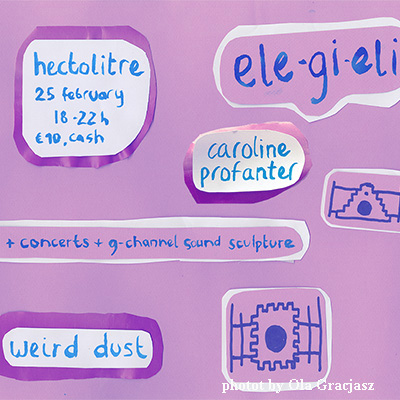 hectolitre
25 february
18-22h
€10, cash
ele-gi-eli
caroline
profanter
+ concerts + g-channel sound sculpture
weird dust
photot by Ola Gracjasz